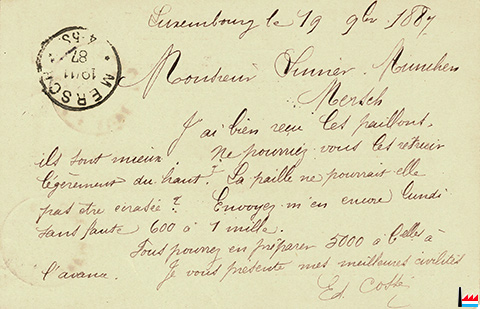 Luxembourg le 19 9br 1887
MERSCH
19/11
87
4-5S
Monsieur Munchen
Mersch
J'ai bien reçu les paillons,
ils sont mieux. Ne pourriez-vous les retrecir
légèrement du haut? La paille ne pourrait-elle
pas être écrasée? Envoyez-m'en encore lundi
sans faute 600 à 1 mille.
Vous pouvez en préparer 5000 à
l'avance. Je vous présente mes meilleures civilités
Ed. Coster